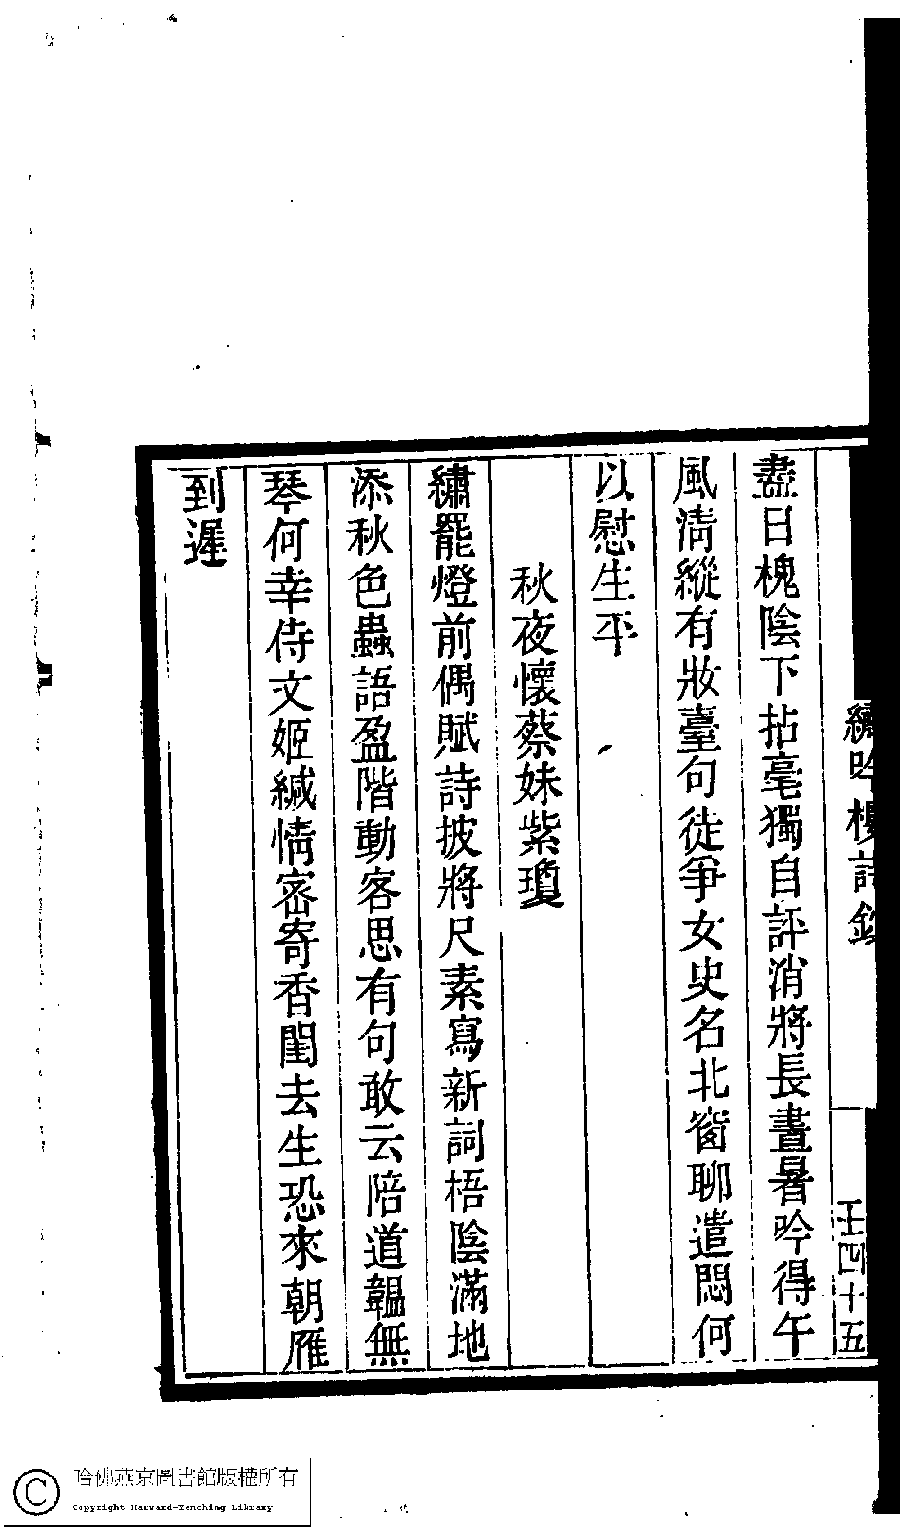 繡吟樓詩鈔
壬四十五
盡日槐陰下拈毫獨自評消將長晝暑吟得午
風淸縱有妝臺句徒爭女史名北窗聊遣悶何
以慰生平
秋夜懷蔡妹紫瓊
繡罷燈前偶賦詩披將尺素寫新詞梧陰滿地
添秋色蟲語盈階動客思有句敢云陪道韞無
琴何幸侍文姬緘情密寄香閨去生恐來朝雁
到遲
哈佛燕京圖書館版權所有
Copyright Harvard-Yenching Library